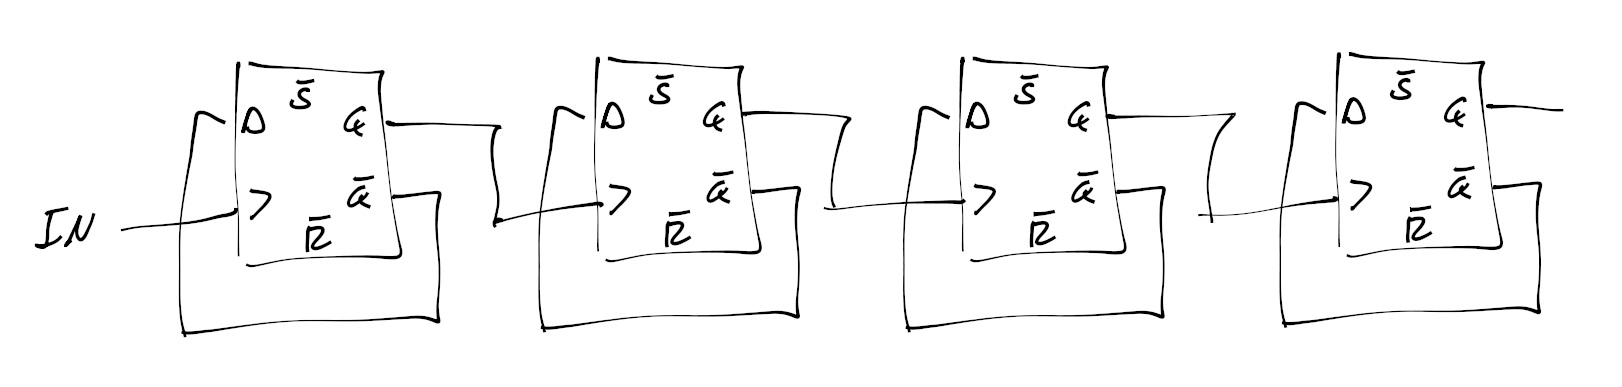 IN
D S̅ Q
> Q̅
R̅
D S̅ Q
> Q̅
R̅
D S̅ Q
> Q̅
R̅
D S̅ Q
> Q̅
R̅